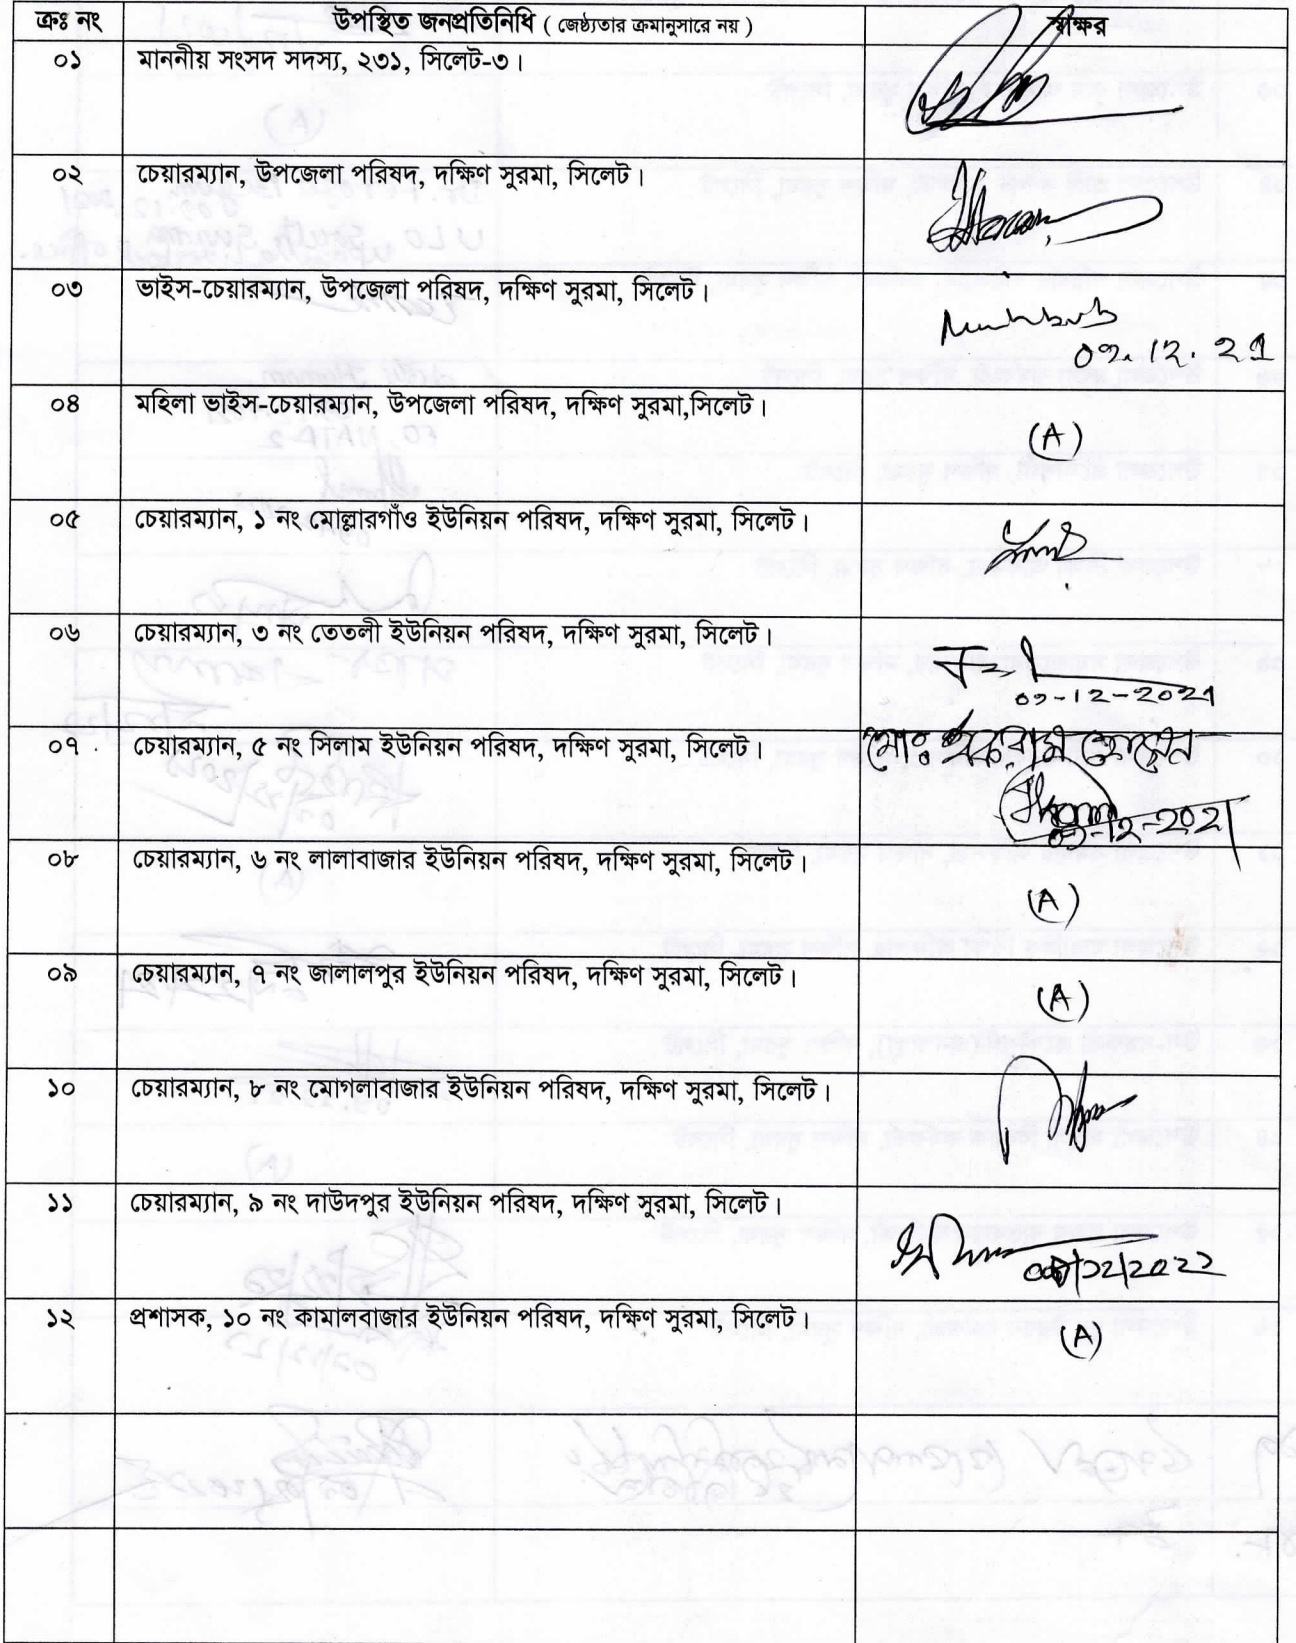 ক্রঃ নং উপস্থিত জনপ্রতিনিধি ( জেষ্ঠ্যতার ক্রমানুসারে নয় ) স্বাক্ষর
০১ মাননীয় সংসদ সদস্য, ২৩১, সিলেট-৩।
০২ চেয়ারম্যান, উপজেলা পরিষদ, দক্ষিণ সুরমা, সিলেট।
০৩ ভাইস-চেয়ারম্যান, উপজেলা পরিষদ, দক্ষিণ সুরমা, সিলেট।
০৪ মহিলা ভাইস-চেয়ারম্যান, উপজেলা পরিষদ, দক্ষিণ সুরমা,সিলেট।
(A)
০৫ চেয়ারম্যান, ১ নং মোল্লারগাঁও ইউনিয়ন পরিষদ, দক্ষিণ সুরমা, সিলেট।
০৬ চেয়ারম্যান, ৩ নং তেতলী ইউনিয়ন পরিষদ, দক্ষিণ সুরমা, সিলেট।
০৭ চেয়ারম্যান, ৫ নং সিলাম ইউনিয়ন পরিষদ, দক্ষিণ সুরমা, সিলেট।
০৮ চেয়ারম্যান, ৬ নং লালাবাজার ইউনিয়ন পরিষদ, দক্ষিণ সুরমা, সিলেট।
(A)
০৯ চেয়ারম্যান, ৭ নং জালালপুর ইউনিয়ন পরিষদ, দক্ষিণ সুরমা, সিলেট।
(A)
১০ চেয়ারম্যান, ৮ নং মোগলাবাজার ইউনিয়ন পরিষদ, দক্ষিণ সুরমা, সিলেট।
১১ চেয়ারম্যান, ৯ নং দাউদপুর ইউনিয়ন পরিষদ, দক্ষিণ সুরমা, সিলেট।
১২ প্রশাসক, ১০ নং কামালবাজার ইউনিয়ন পরিষদ, দক্ষিণ সুরমা, সিলেট।
(A)